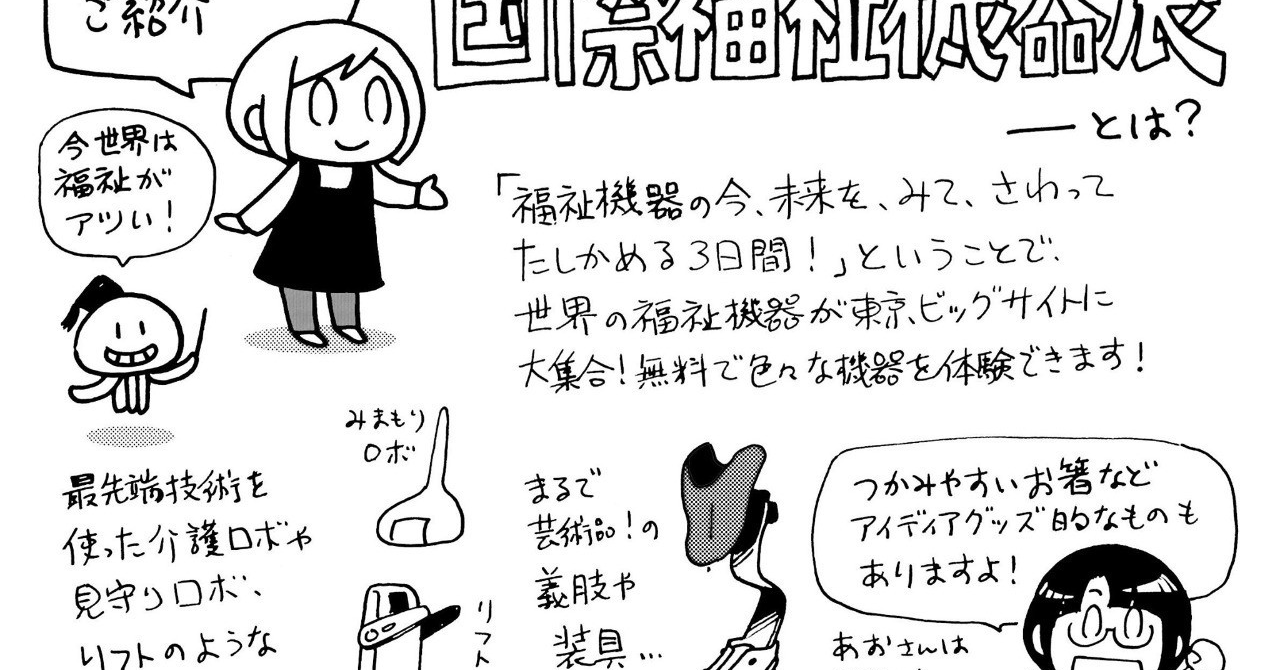 ご紹介
国際福祉機器展
――とは?
今世界は
福祉が
アツい!
「福祉機器の今、未来を、みて、さわって
たしかめる3日間!」ということで、
世界の福祉機器が東京ビッグサイトに
大集合!無料で色々な機器を体験できます!
みまもり
ロボ
最先端技術を
使った介護ロボや
見守りロボ、
リフトのような
リフト
まるで
芸術品!の
義肢や
装具…
つかみやすいお箸など
アイディアグッズ的なものも
ありますよ!
あおさんは